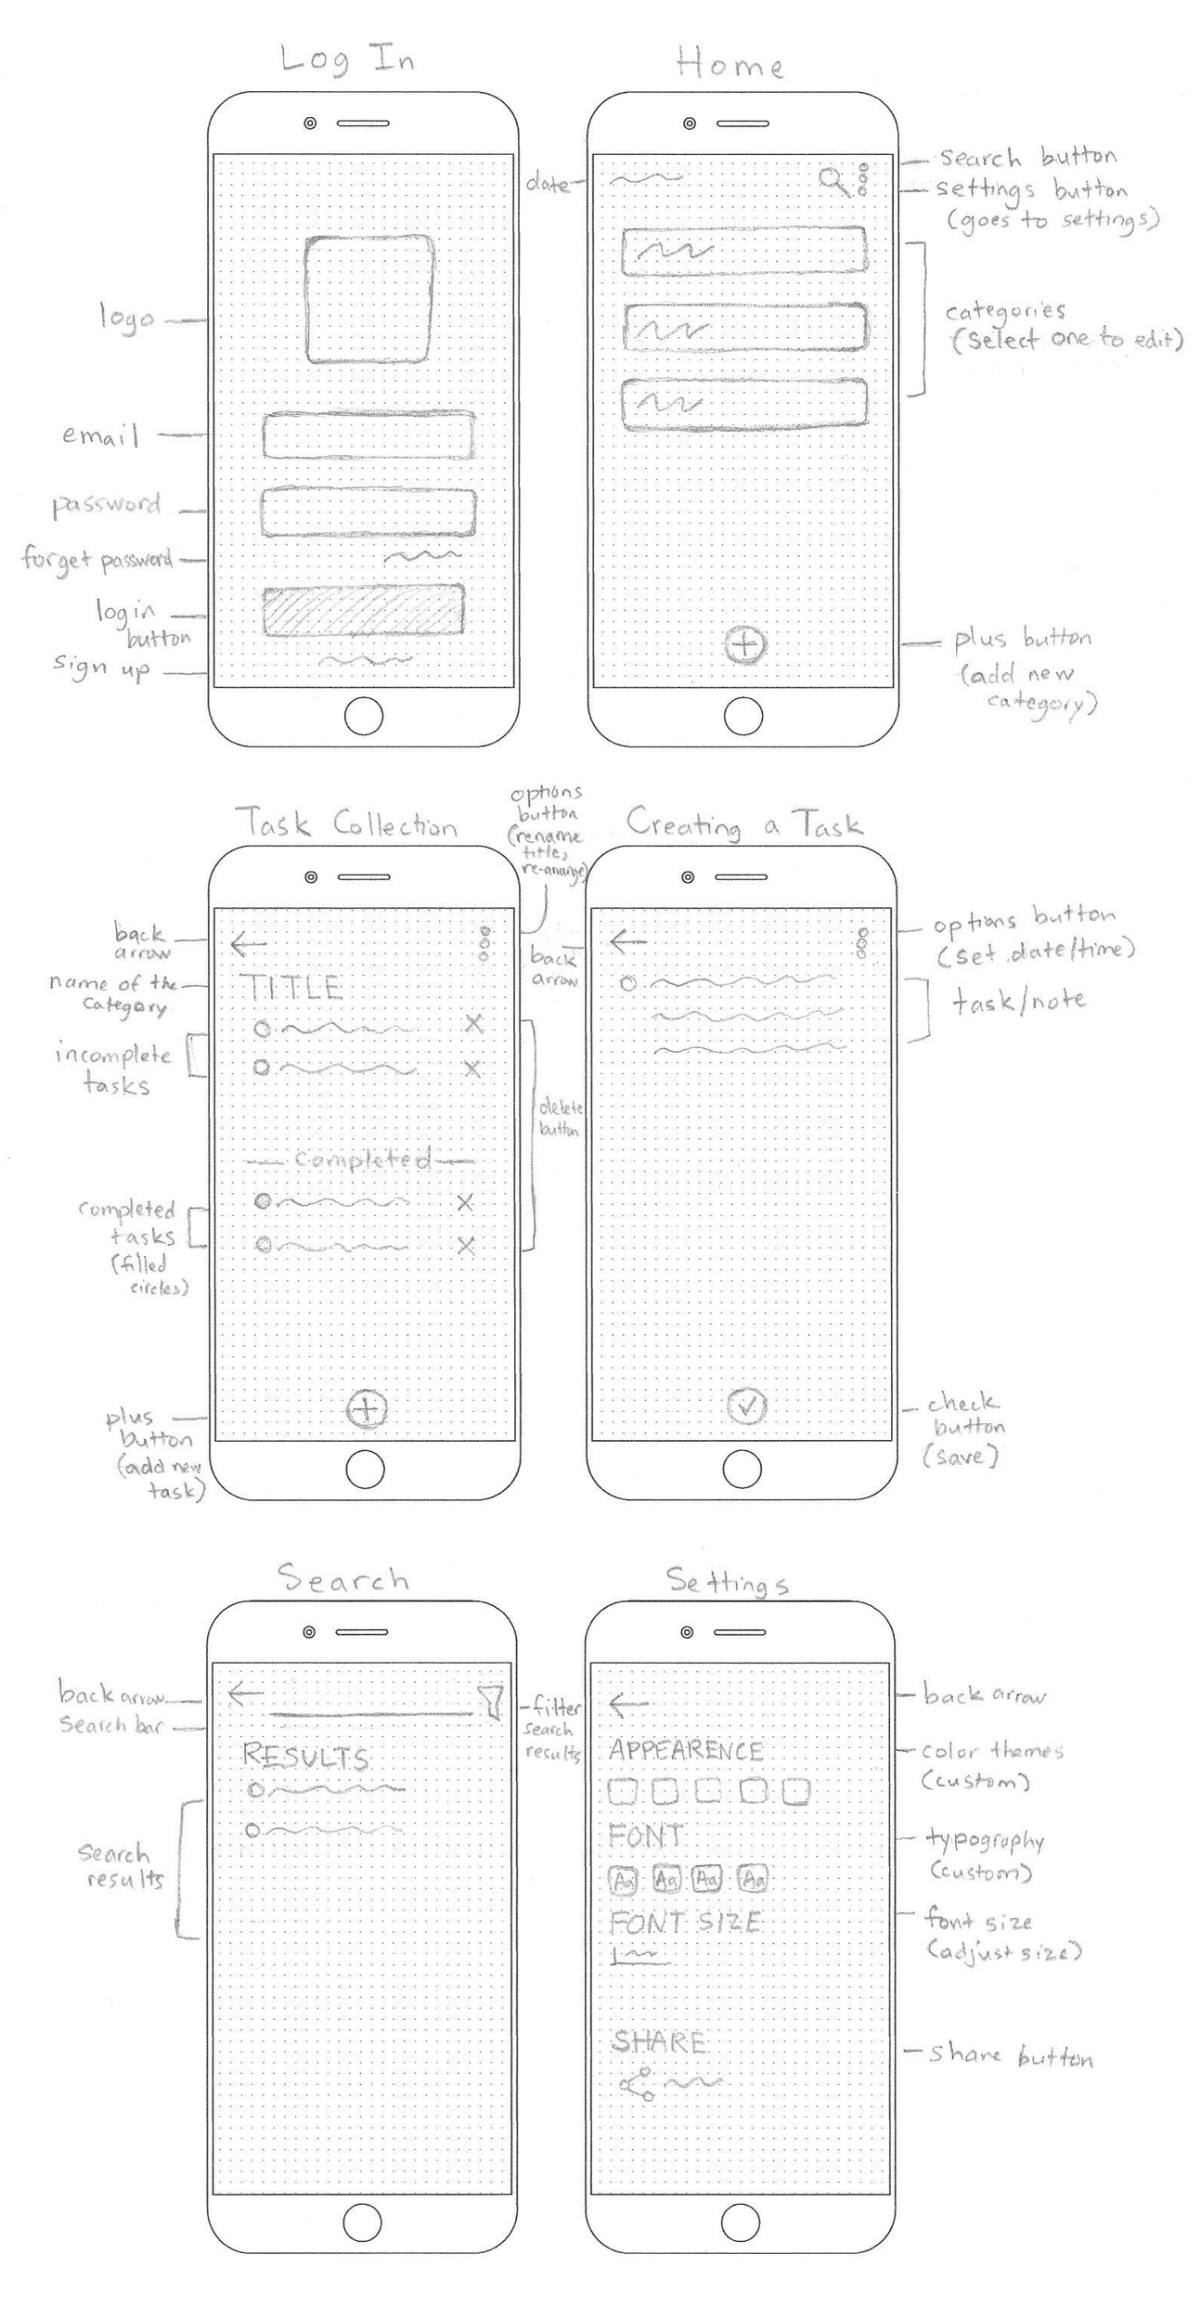 Log In
logo
email
password
forget password
login
button
sign up
Home
date
search button
settings button
(goes to settings)
categories
(select one to edit)
plus button
(add new
category)
Task Collection
options
button
(rename
title,
re-arrange)
back
arrow
name of the
category
TITLE
incomplete
tasks
delete
button
Completed
completed
tasks
(filled
circles)
plus
button
(add new
task)
Creating a Task
back
arrow
options button
(set date/time)
task/note
check
button
(save)
Search
back arrow
search bar
filter
search
results
RESULTS
search
results
Settings
back arrow
APPEARENCE
color themes
(custom)
FONT
typography
(custom)
Aa Aa Aa Aa
FONT SIZE
font size
(adjust size)
SHARE
share button